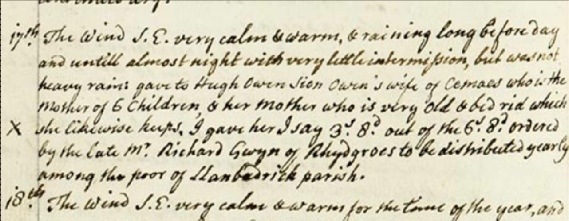 17th The Wind S.E. very calm & warm, & raining long before day
and untill almost night with very little intermission, but was not
heavy rain; gave to Hugh Owen Sion Owen's wife of Cemaes who is the
Mother of 6 Children, & her Mother who is very old & bed rid which
X she likewise keeps, I gave her I say 3s. 8d. out of the 6s. 8d. ordered
by the late Mr. Richard Gwyn of Rhydgroes to be distributed yearly
among the poor of Llanbadrick parish.
18th The Wind S.E. very calm & warm for the time of the year, and